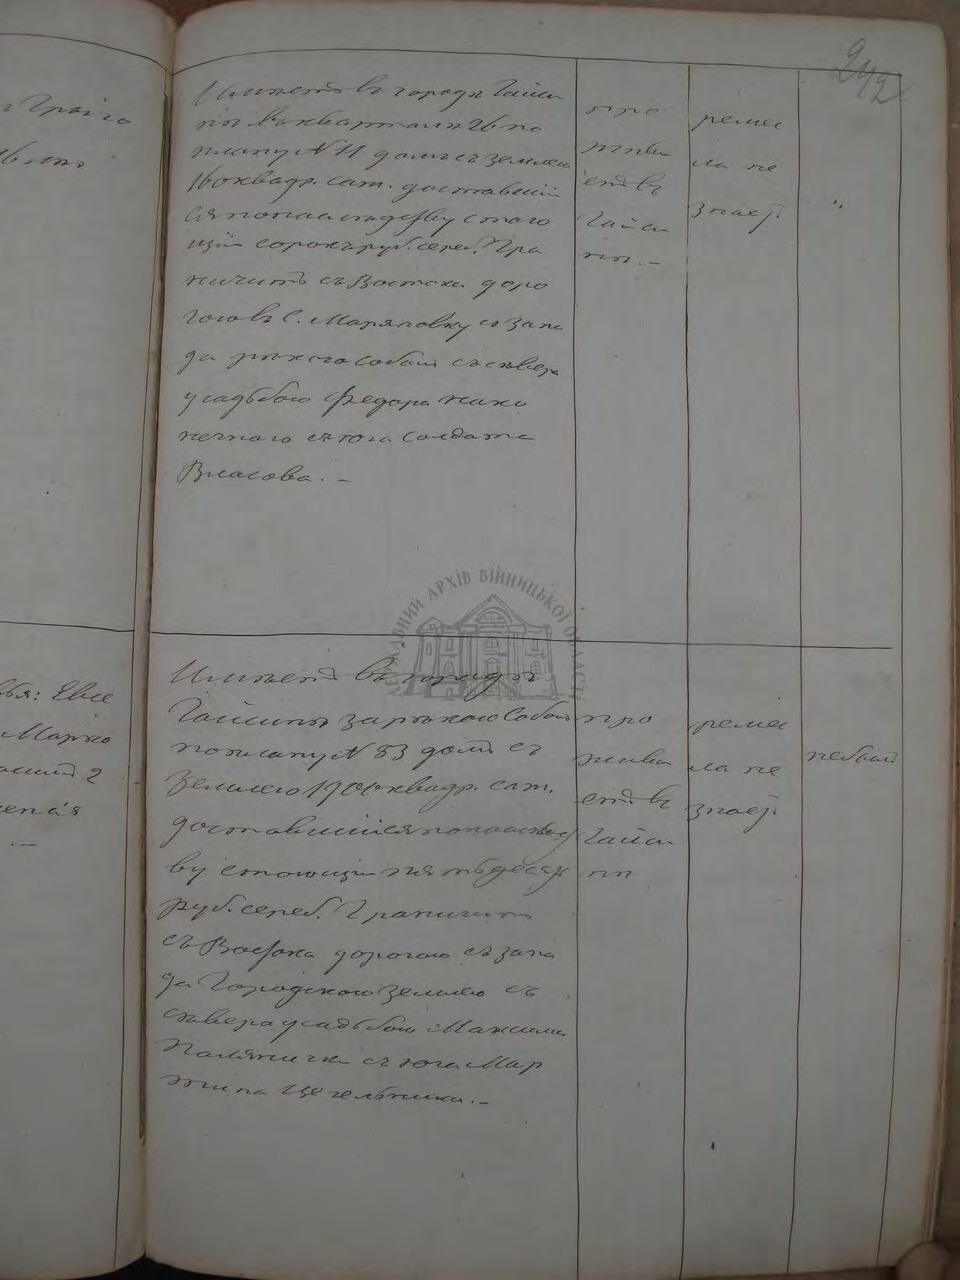 242
Имѣетъ въ городѣ Гайси
нѣ въ кварталѣ 26 по
плану № 11 домъ съ землею
квадр. саж. доставшій
ся по наследству стою
щій сорокъ руб. сереб. Гра
ничитъ съ Востока доро
гою въ с. Маряновку съ запа
да рѣкою Собомъ съ сѣвера
усадьбою Федора Нако
нечнаго съ юга солдата
Власова. —
про
жива
етъ въ
Гайси
нѣ. —
ремес
ла не
знаетъ
"
Имѣетъ въ городѣ
Гайсинѣ за рѣкою Собомъ
по плану № 83 домъ съ
землею 1700 квадр. саж.
доставшійся по наслѣдст
ву стоющій пятьдесятъ
руб. сереб. Граничитъ
съ Востока дорогою съ запа
да Городскою землею съ
сѣвера усадьбою Максима
Паляничка съ юга Мар
тина Цегельника. —
про
жива
етъ въ
Гайси
нѣ
ремес
ла не
знаетъ
небылъ
вья: Евге
Марко
2
ДЕРЖАВНИЙ АРХІВ ВІННИЦЬКОЇ ОБЛАСТІ